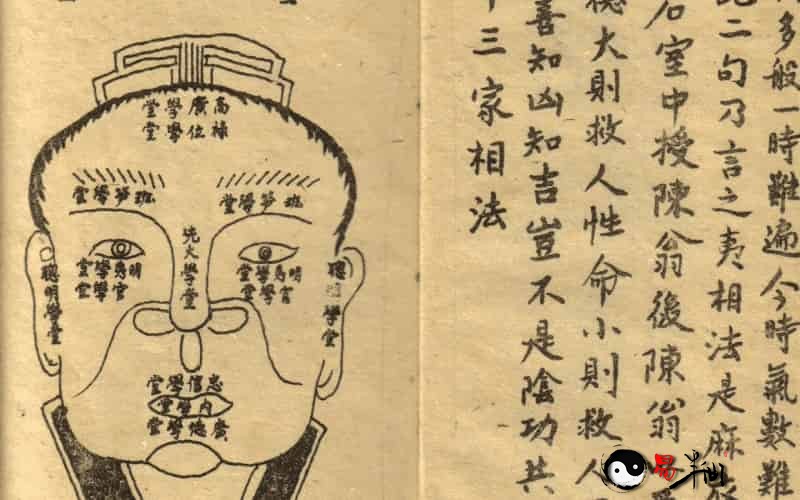 多般一時難遍今時氣數難
二句乃言之夷相法是麻
石室中授陳翁後陳翁
德大則救人性命小則救人
善知凶知吉豈不是陰功共
十三家相法
高廣學堂
祿位學堂
班笋學堂
班笋學堂
明爲學堂
官學堂
明爲學堂
官學堂
大學堂
聰明學堂
聰明學堂
忠信學堂
內學堂
廣德學堂
易